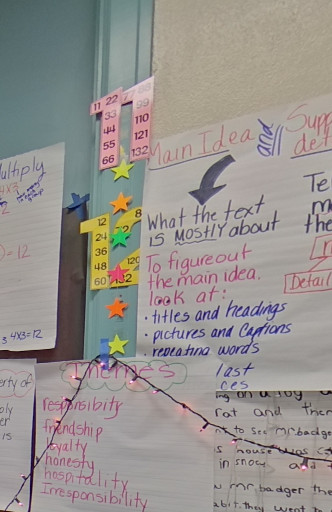 ultiply
4x3
= 12
3 4x3=12
11 22
33
44
55
66
77 88
99
110
121
132
12
24
36
48
60
120
132
Main Idea
and
Supp
det
What the text
is MOSTLY about
To figure out
the main idea.
look at:
• titles and headings
• pictures and captions
• repeating words
last
ces
Te
m
the
Detail
Themes
responsibity
friendship
loyalty
honesty
hospitality
Irresponsibility
erty of
ply
er
is
rat and then
to see mr.badge
s house was co
in snow
mr.badger the
abit.they went